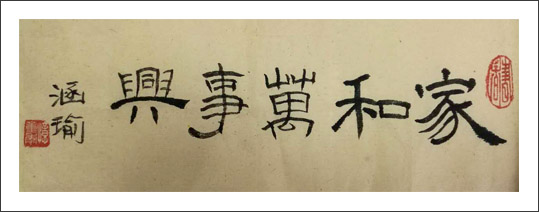 家和萬事興
涵瑜